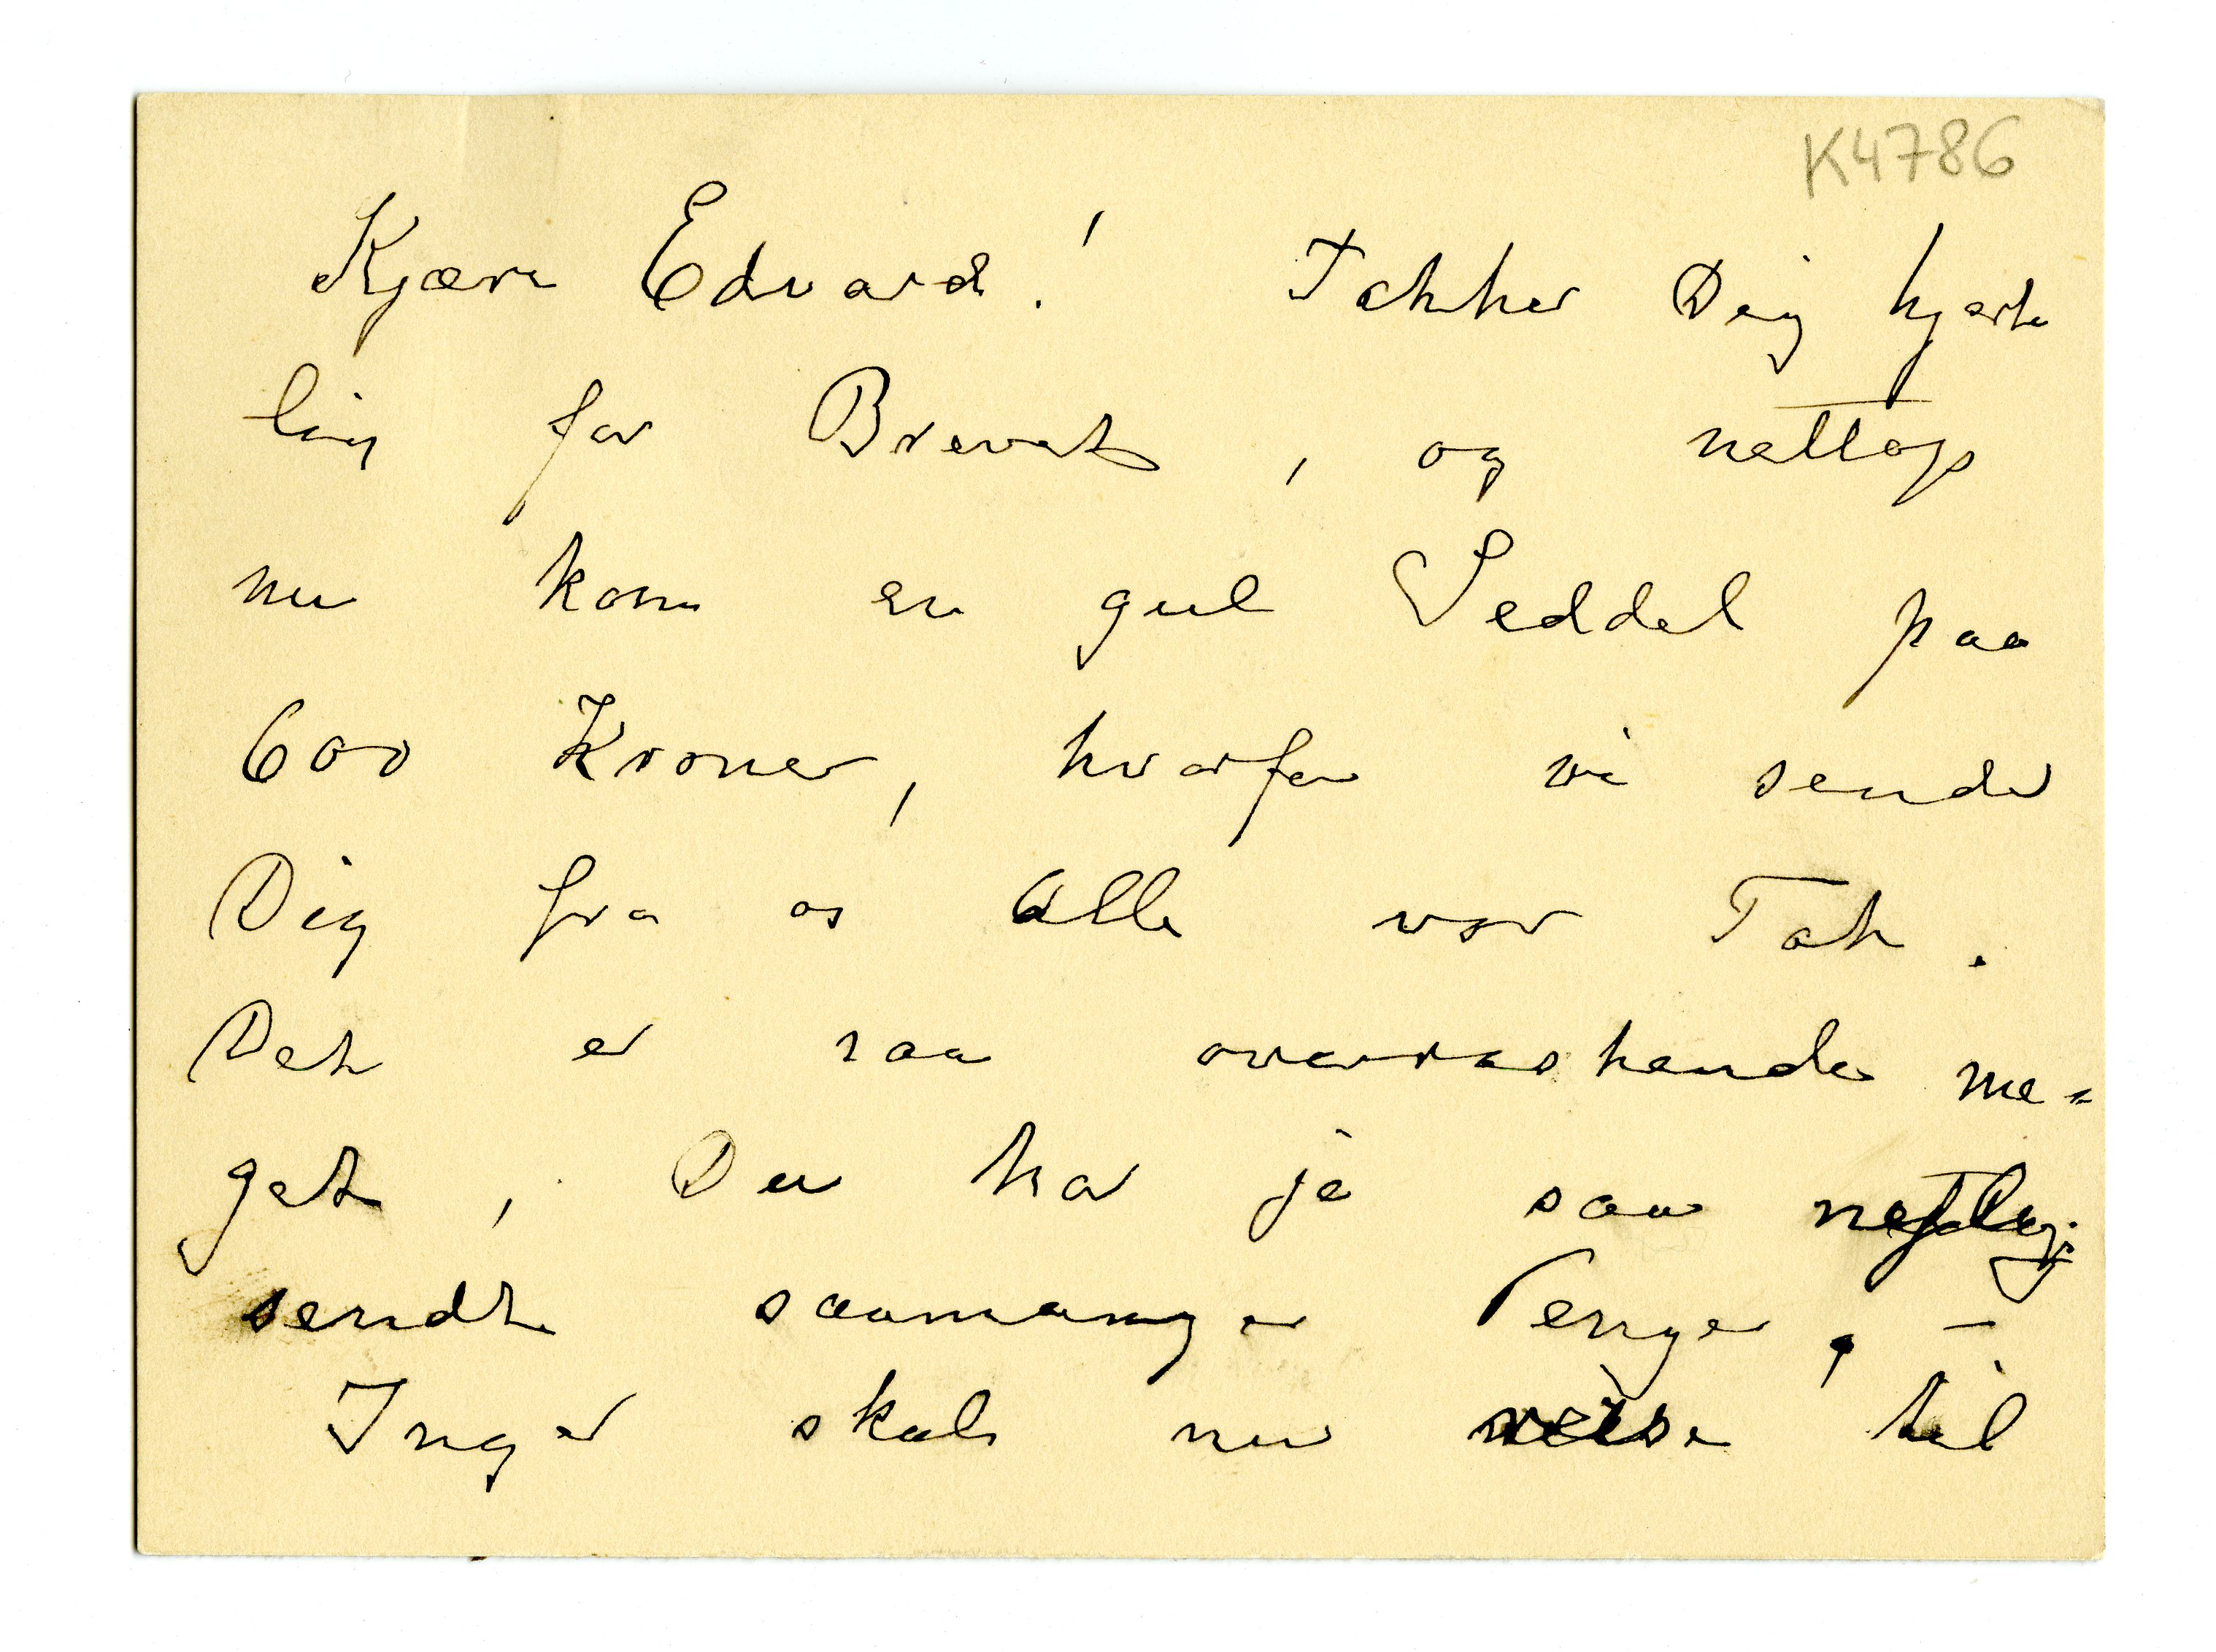 K4786
Kjære Edvard! Takker Dig hjerte
lig for Brevet, og nettop
nu kom en gul Seddel paa
600 Kroner, hvorfor vi sender
Dig fra os Alle vor Tak.
Det er saa overraskende me=
get, Du har jo saa nettop
sendt saamange Penger, –
Inger skal nu reise til